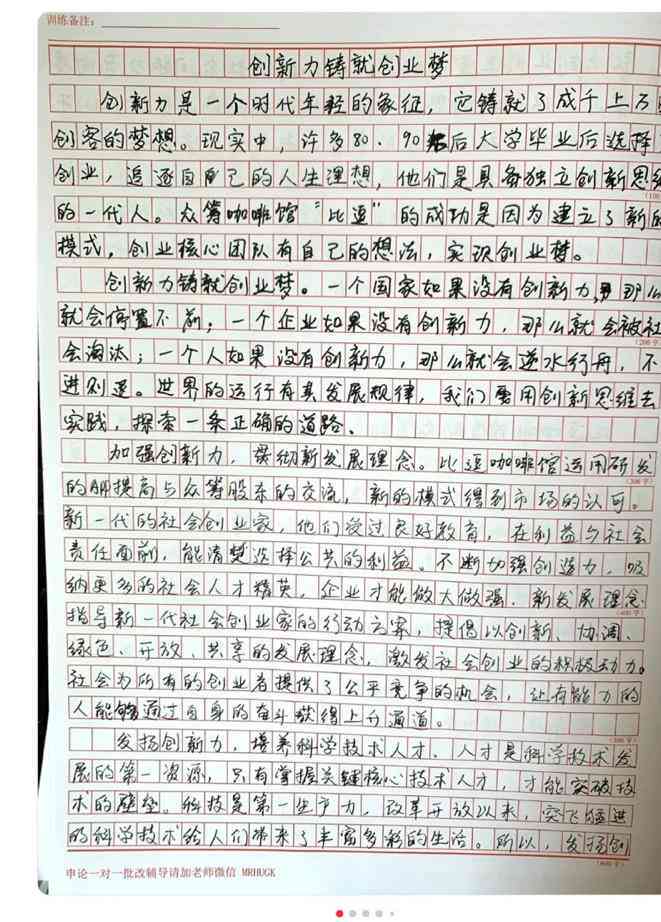 训练备注:
创新力铸就创业梦
创新力是一个时代年轻的象征,它铸就了成千上万
创客的梦想。现实中,许多80、90后大学毕业后选择
创业,追逐自己的人生理想,他们是具备独立创新思维
的一代人。众筹咖啡馆“比逗”的成功是因为建立了新的
模式,创业核心团队有自己的想法,实现创业梦。
创新力铸就创业梦。一个国家如果没有创新力,那么
就会停置不前;一个企业如果没有创新力,那么就会被社
(200字)
会淘汰;一个人如果没有创新力,那么就会逆水行舟,不
进则退。世界的运行有其发展规律,我们要用创新思维去
实践,探索一条正确的道路、
加强创新力,贯彻新发展理念。比逗咖啡馆运用研发
(300字)
的 提高与众筹股东的交流,新的模式得到市场的认可。
新一代的社会创业家,他们受过良好教育,在利益与社会
责任面前,能清楚选择公共的利益。不断加强创造力,吸
纳更多的社会人才精英,企业才能做大做强.新发展理念
(400字)
指导新一代社会创业家的行动方案,提倡以创新、协调、
绿色、开放、共享的发展理念,激发社会创业的积极动力。
社会为所有的创业者提供了公平竞争的机会,让有能力的
人能够通过自身的奋斗获得上升通道。
(500字)
发扬创新力,培养科学技术人才.人才是科学技术发
展的第一资源,只有掌握关键核心技术人才,才能突破技
术的壁垒。科技是第一生产力,改革开放以来,突飞猛进
的科学技术给人们带来了丰富多彩的生活。所以,发扬创
(600字)
申论一对一批改辅导请加老师微信 MRHUGK